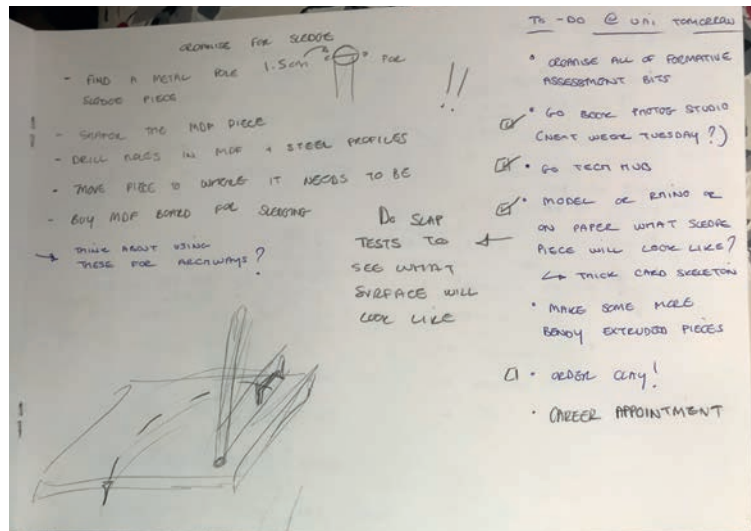 ORGANISE FOR SLEDGE
- FIND A METAL POLE 1.5cm FOR
SLEDGE PIECE
!!
- THE MDF PIECE
- DRILL HOLES IN MDF + STEEL PROFILES
- MOVE PIECE TO WHERE IT NEEDS TO BE
- BUY MDF BOARD FOR SLEDGING
→ THINK ABOUT USING
THESE FOR ARCHWAYS?
DO SLAP
TESTS TO
SEE WHAT
SURFACE WILL
LOOK LIKE
TO-DO @ UNI TOMORROW
• ORGANISE ALL OF FORMATIVE
ASSESSMENT BITS
• GO BOOK PHOTOG STUDIO
(NEXT WEEK TUESDAY?)
• GO TECH HUB
• MODEL ON RHINO OR
ON PAPER WHAT SLEDGE
PIECE WILL LOOK LIKE?
↳ THICK CARD SKELETON
• MAKE SOME MORE
BENDY EXTRUDED PIECES
• ORDER CLAY!
• CAREER APPOINTMENT